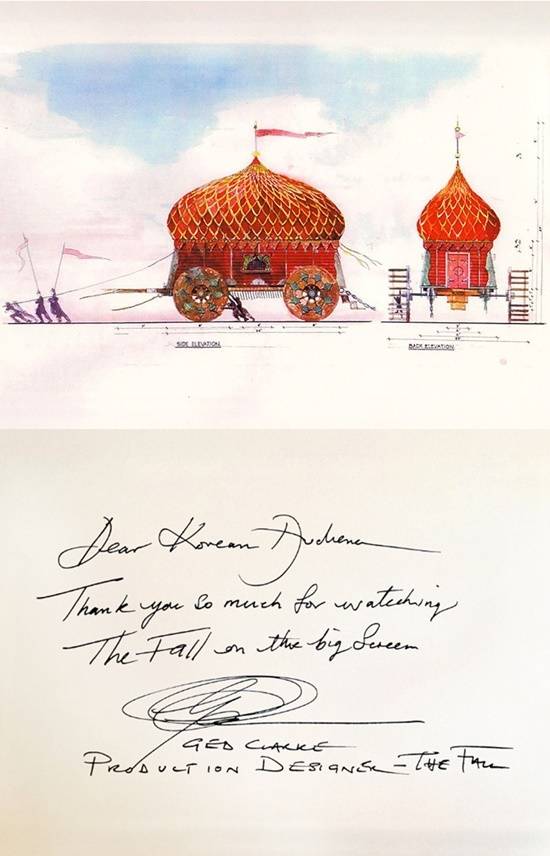 SIDE ELEVATION
BACK ELEVATION
Dear Korean Audience
Thank you so much for watching
The Fall on the big Screen
GED CLARKE
PRODUCTION DESIGNER - THE FALL